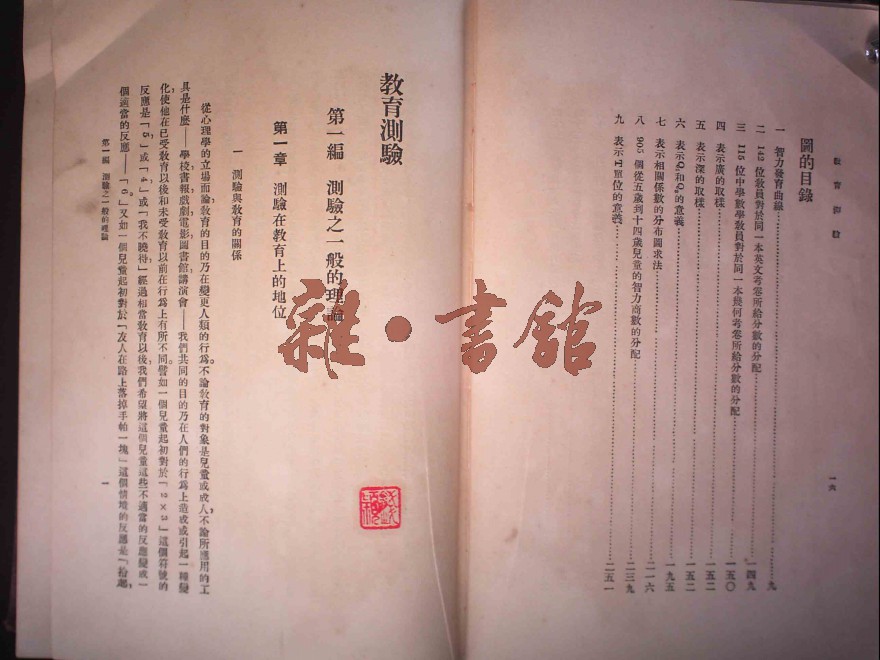 教育測驗
一六
圖的目錄
一 智力發育曲線……九
二 142 位敎員對於同一本英文考卷所給分數的分配……一四九
三 115 位中學數學敎員對於同一本幾何考卷所給分數的分配……一五〇
四 表示廣的取樣……一五二
五 表示深的取樣……一五二
六 表示Q₁和Q₃的意義……一九五
七 表示相關係數的分布圖求法……二一六
八 905 個從五歲到十四歲兒童的智力商數的分配……二三九
九 表示T單位的意義……二五一
教育測驗
第一編 測驗之一般的理論
第一章 測驗在教育上的地位
一 測驗與敎育的關係
從心理學的立場而論,敎育的目的乃在變更人類的行爲。不論敎育的對象是兒童或成人,不論所應用的工
具是什麼——學校,書報,戲劇,電影,圖書館,講演會——我們共同的目的乃在人們的行爲上造成或引起一種變
化,使他在已受敎育以後和未受敎育以前在行爲上有所不同。譬如一個兒童起初對於「2×3」這個符號的
反應是「5」或「4」或「我不曉得」,經過相當敎育以後,我們希望將這個兒童這些不適當的反應變成一
個適當的反應——「6」。又如一個兒童起初對於「友人在路上落掉手帕一塊」這個情境的反應是「拾起,
第一編 測驗之一般的理論
一
雜·書館